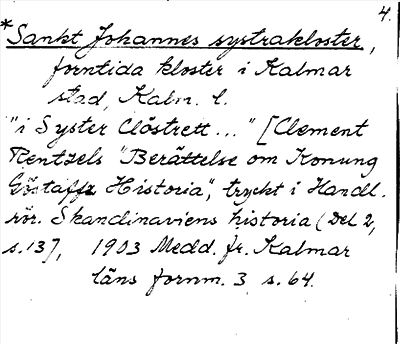 4.
*Sankt Johannes systrakloster,
forntida kloster i Kalmar
stad, Kalm. l.
"i Syster Clöstrett..." [Clement
Rentzels "Berättelse om Konung
Göstaffz Historia", tryckt i Handl.
rör. Skandinaviens historia (Del 2,
s.13], 1903 Medd. fr. Kalmar
läns fornm. 3, s. 64.